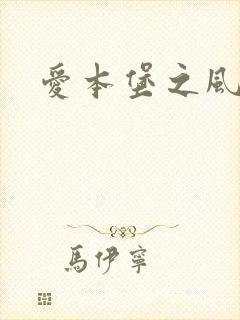 愛本堡之風
馬伊寧